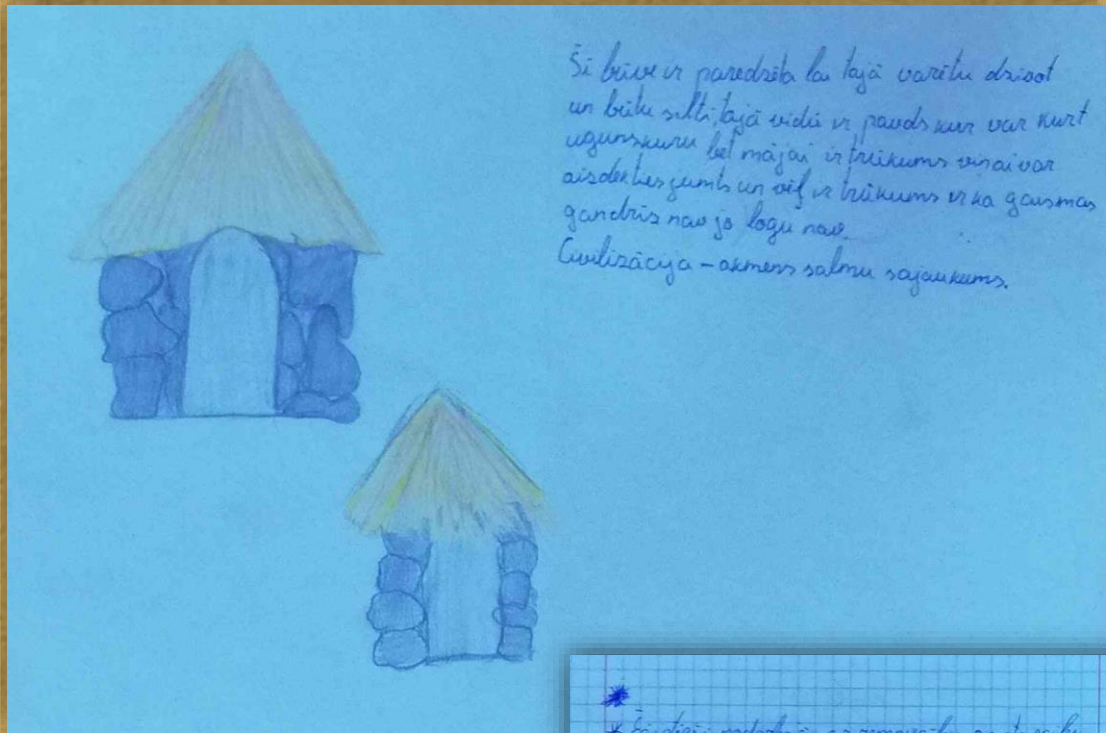 Šī būve ir paredzēta lai tajā varētu dzīvot
un būtu silti, tajā vidū ir pavds kur var kurt
ugunskuru bet mājai ir trūkums viņai var
aizdekties jumts un vēl ir trūkums ir ka gaismas
gandrīz nav jo logu nav.
Civilizācija – akmens salmu sajaukums.